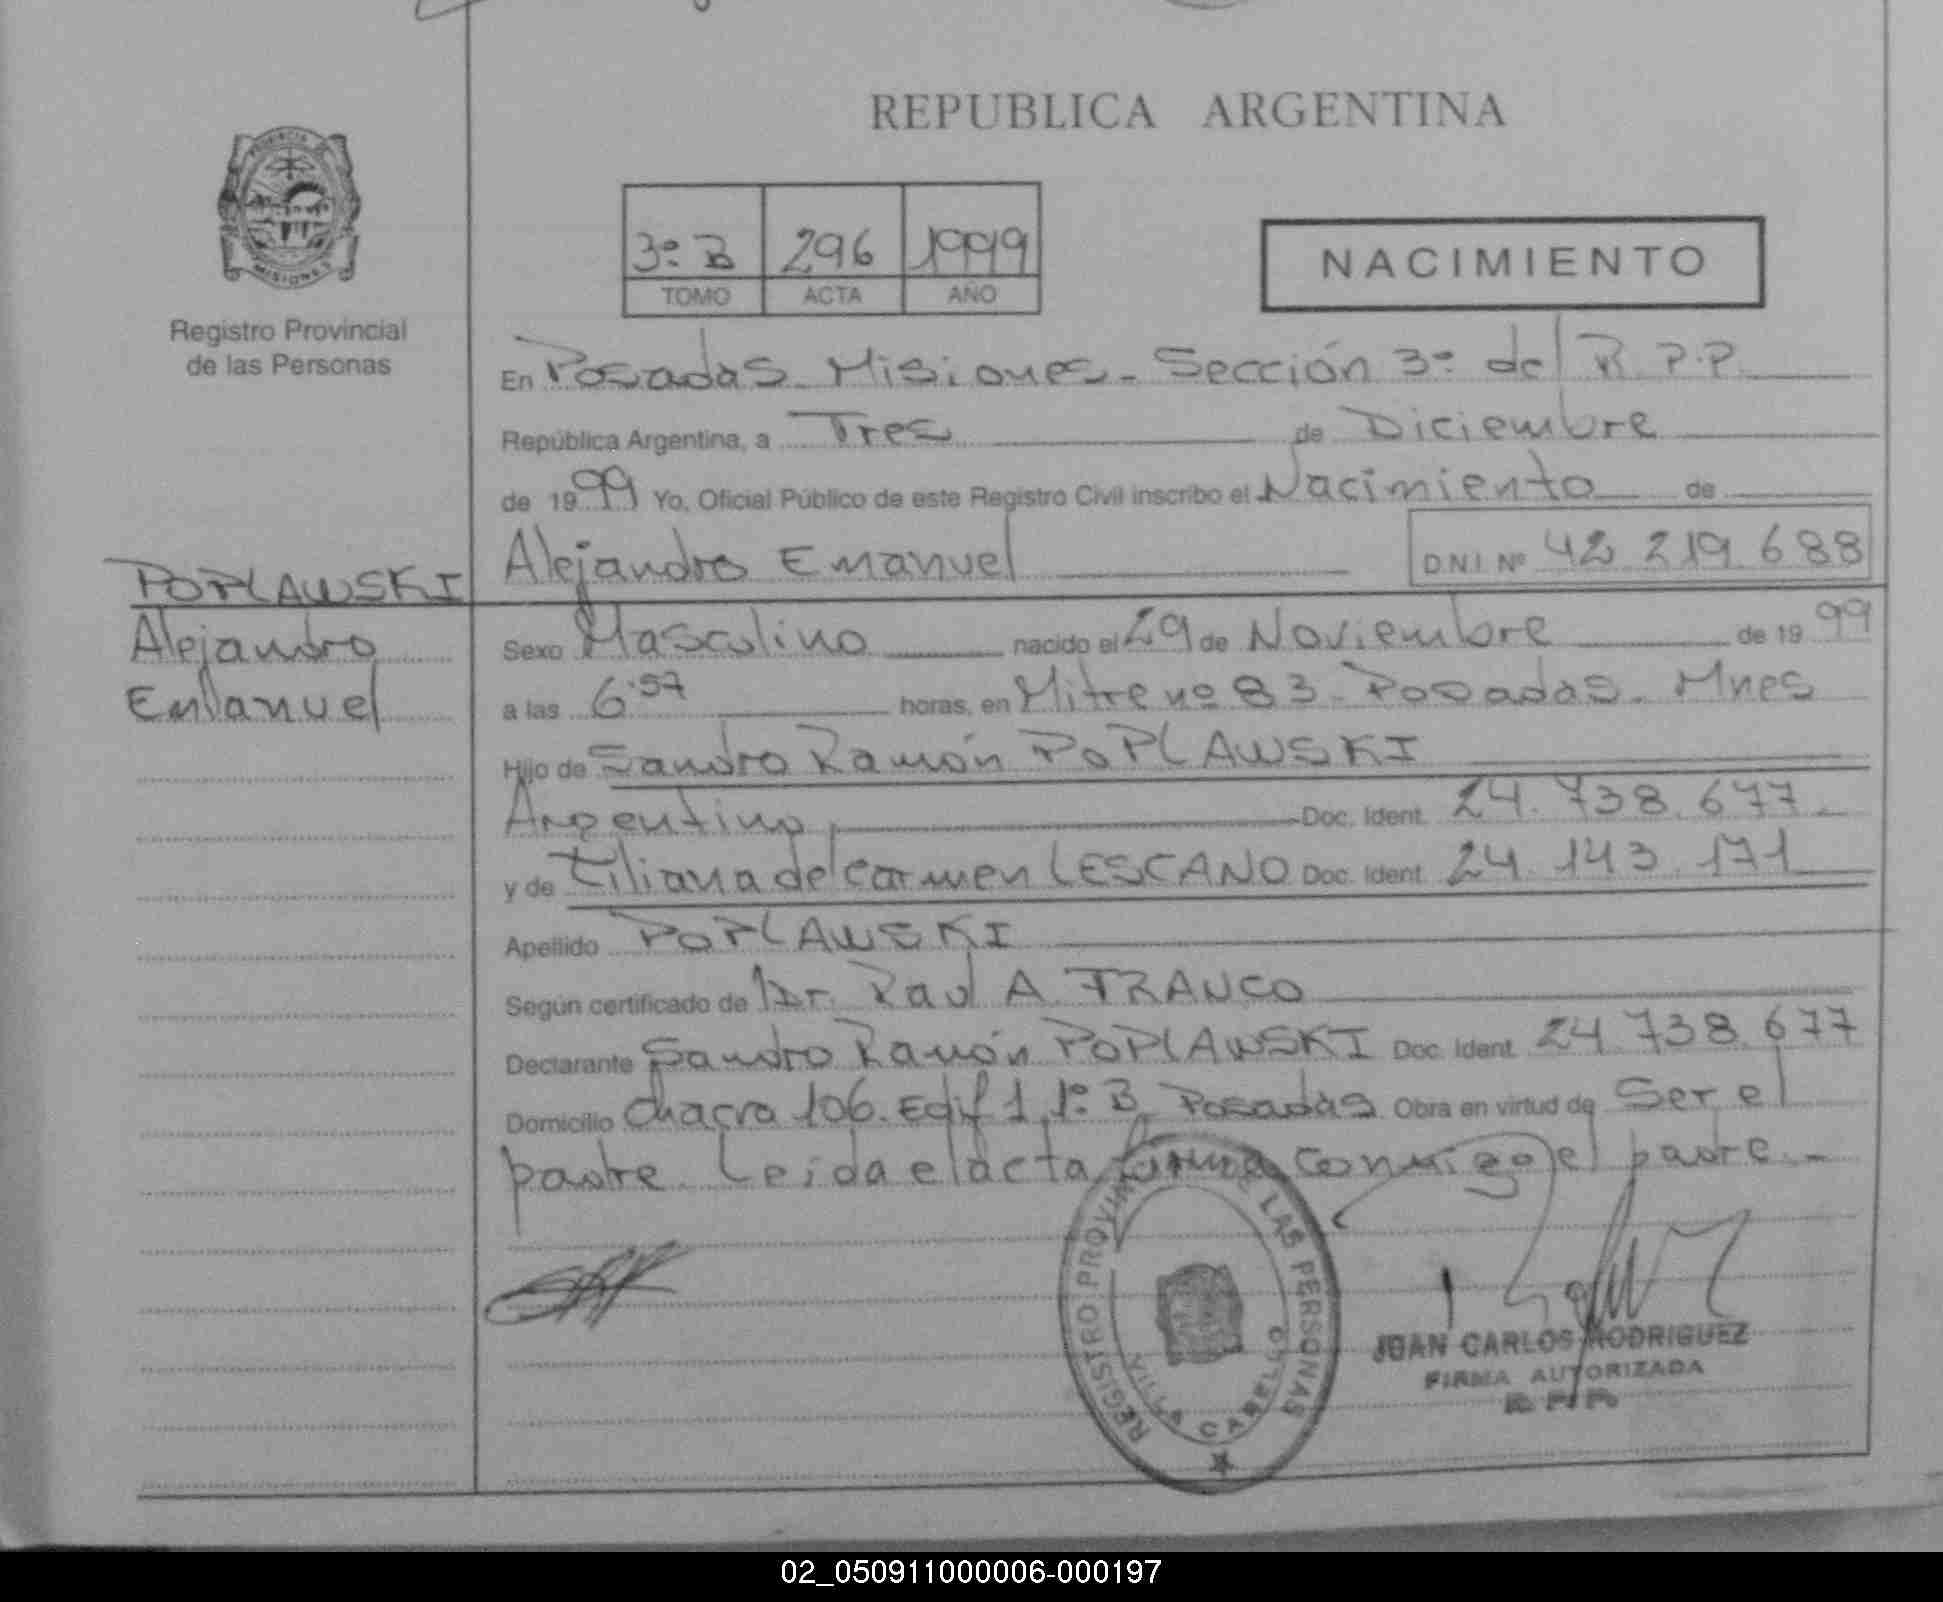 REPUBLICA ARGENTINA
PROVINCIA DE
MISIONES
Registro Provincial
de las Personas
3º B 296 1999
TOMO ACTA AÑO
NACIMIENTO
En Posadas Misiones - Sección 3º del R.P.P.
República Argentina, a Tres de Diciembre
de 1999 Yo, Oficial Público de este Registro Civil inscribo el Nacimiento de
Alejandro Emanuel D.N.I. Nº 42 219 688
POPLAWSKI
Alejandro
Emanuel
Sexo Masculino nacido el 29 de Noviembre de 1999
a las 6:57 horas, en Mitre nº 83 - Posadas - Mnes
Hijo de Sandro Ramón POPLAWSKI
Argentino Doc. Ident. 24.738.677
y de Liliana del Carmen LESCANO Doc. Ident. 24.143.171
Apellido POPLAWSKI
Según certificado de Dr. Raul A FRANCO
Declarante Sandro Ramón POPLAWSKI Doc. Ident. 24 738 677
Domicilio Chacra 106. Edif 1 1º B Posadas Obra en virtud de Ser el
padre. Leida el acta firma conmigo el padre.-
REGISTRO PROVINCIAL DE LAS PERSONAS
VILLA CABELLO
JUAN CARLOS RODRIGUEZ
FIRMA AUTORIZADA
R.P.P.
02_050911000006-000197